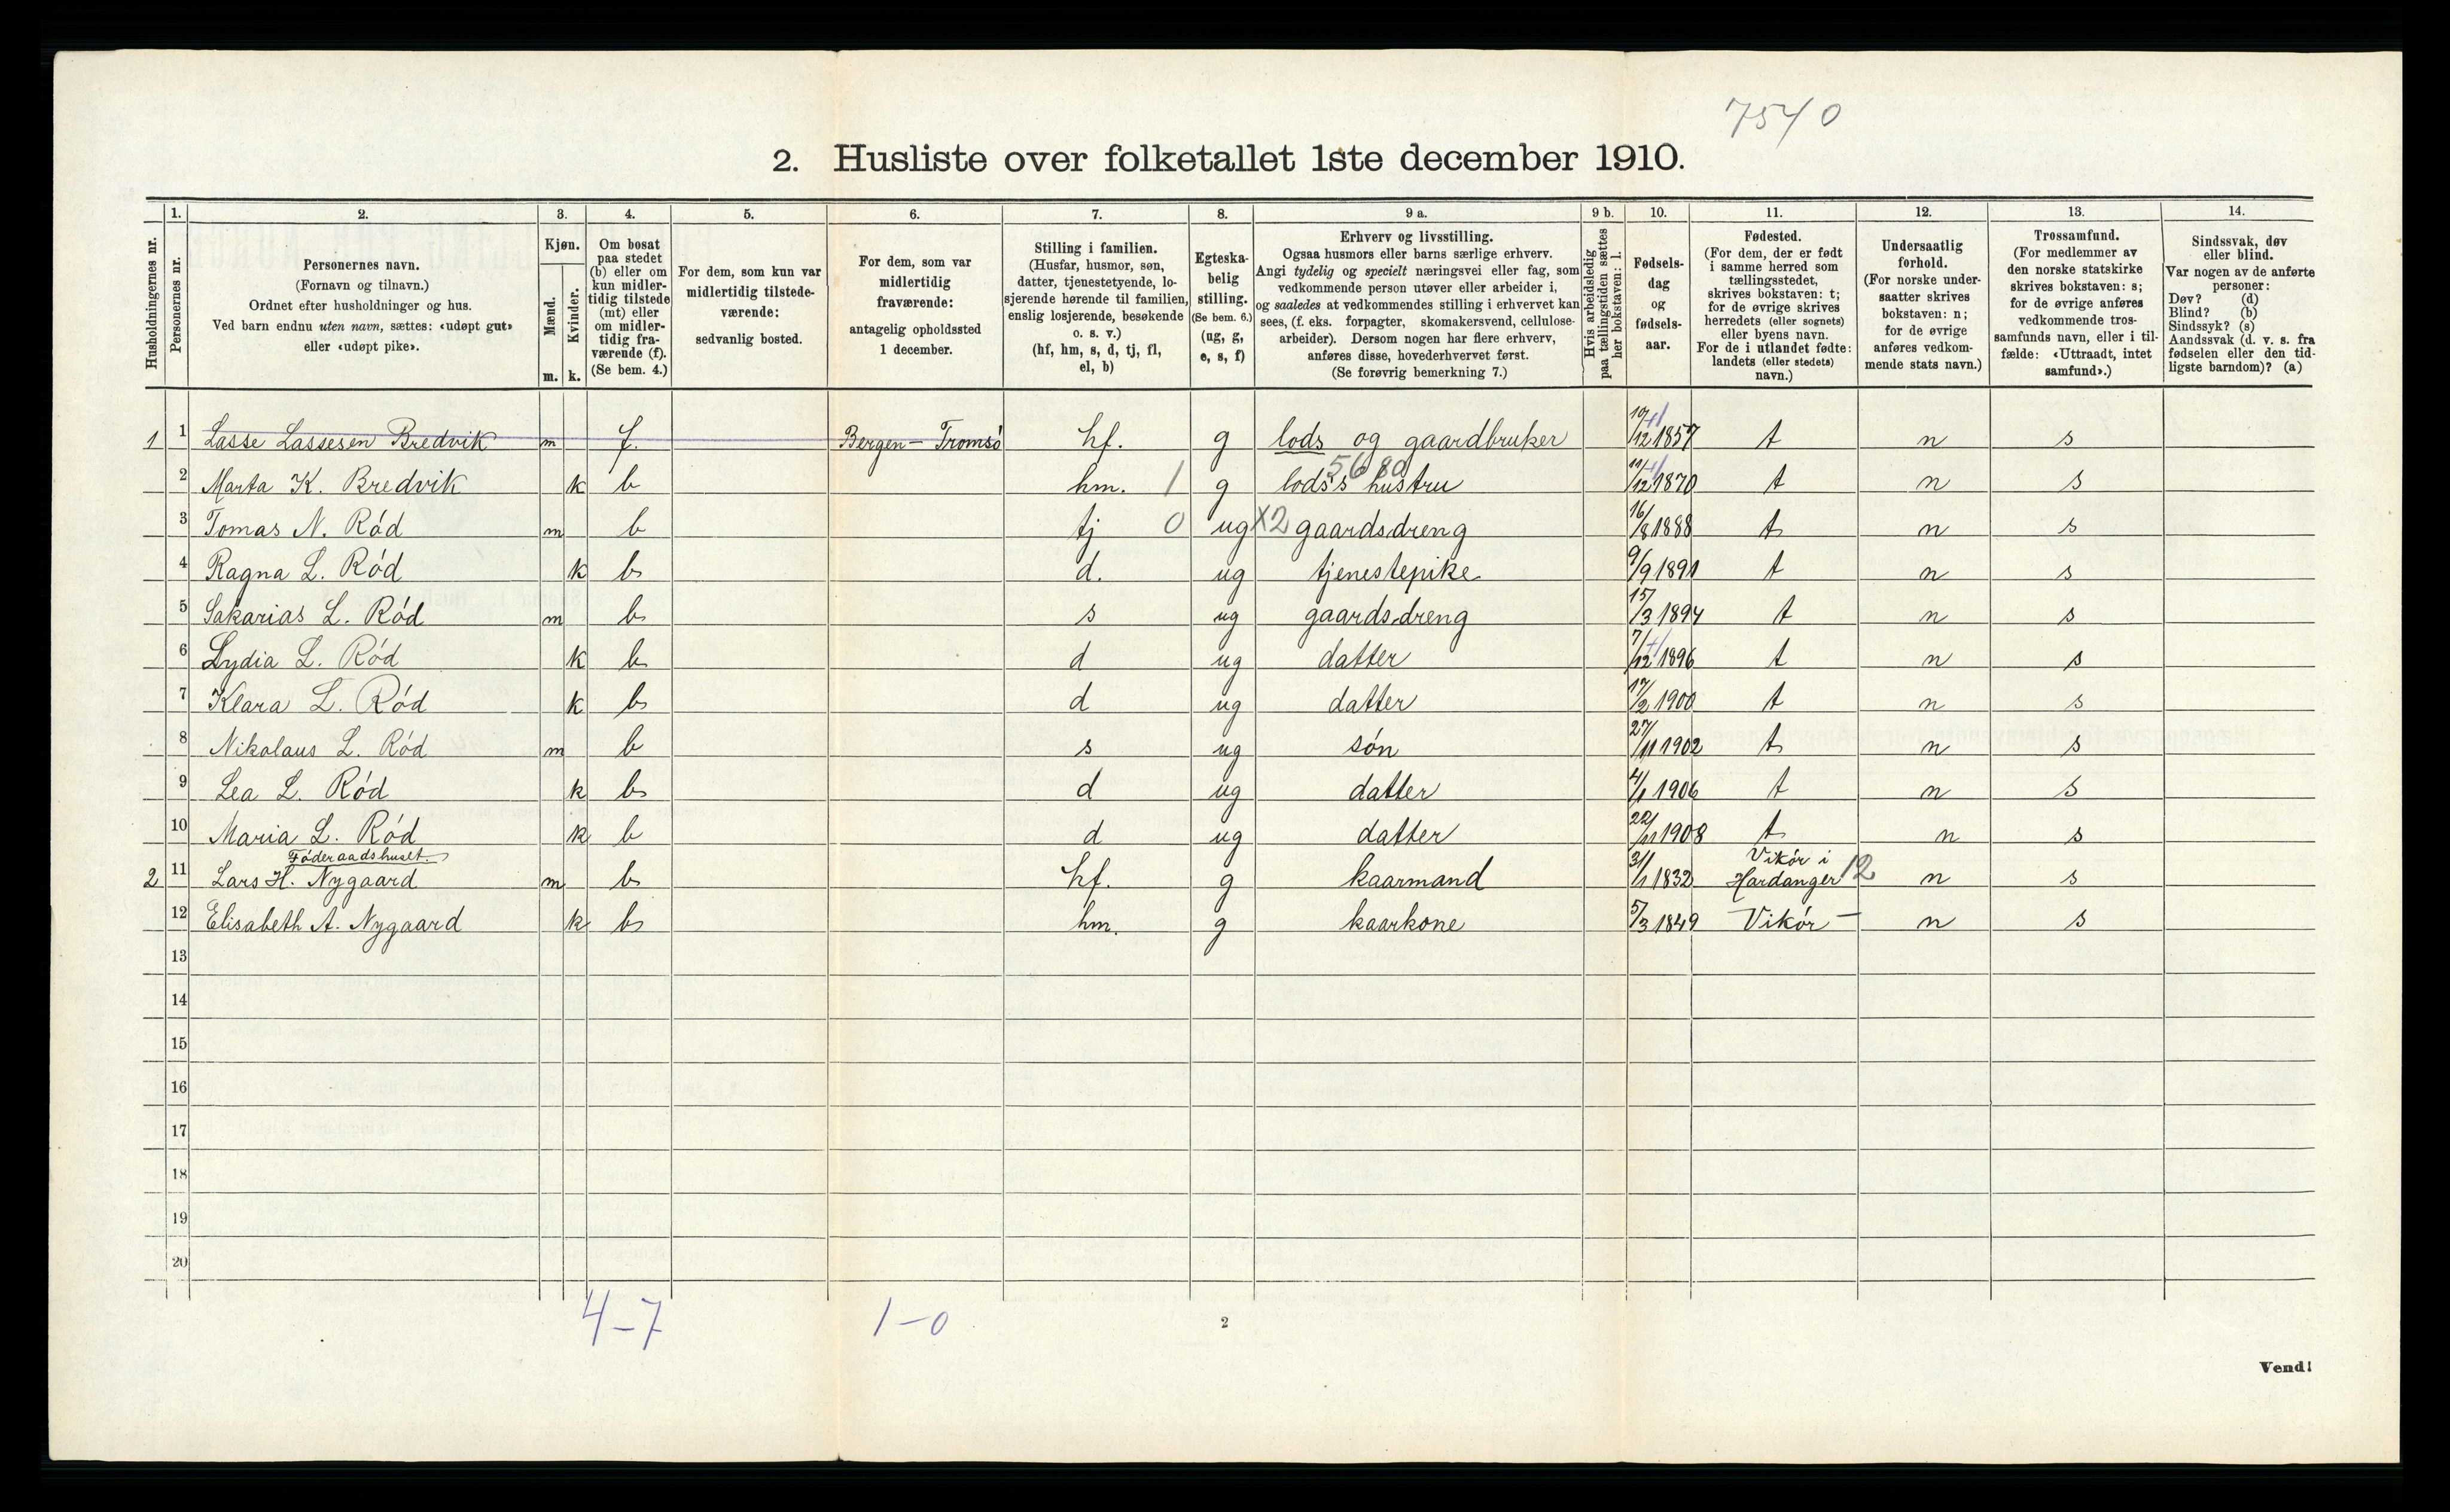 7540
2. Husliste over folketallet 1ste december 1910.
1. 2. 3. 4. 5. 6. 7. 8. 9 a. 9 b. 10. 11. 12. 13. 14.
Husholdningernes nr.
Personernes nr.
Personernes navn.
(Fornavn og tilnavn.)
Ordnet efter husholdninger og hus.
Ved barn endnu uten navn, sættes: «udøpt gut»
eller «udøpt pike».
Kjøn.
Mænd.
Kvinder.
m. k.
Om bosat
paa stedet
(b) eller om
kun midler-
tidig tilstede
(mt) eller
om midler-
tidig fra-
værende (f).
(Se bem. 4.)
For dem, som kun var
midlertidig tilstede-
værende:
sedvanlig bosted.
For dem, som var
midlertidig
fraværende:
antagelig opholdssted
1 december.
Stilling i familien.
(Husfar, husmor, søn,
datter, tjenestetyende, lo-
sjerende hørende til familien,
enslig losjerende, besøkende
o. s. v.)
(hf, hm, s, d, tj, fl,
el, b)
Egteska-
belig
stilling.
(Se bem. 6.)
(ug, g,
e, s, f)
Erhverv og livsstilling.
Ogsaa husmors eller barns særlige erhverv.
Angi tydelig og specielt næringsvei eller fag, som
vedkommende person utøver eller arbeider i,
og saaledes at vedkommendes stilling i erhvervet kan
sees, (f. eks. forpagter, skomakersvend, cellulose-
arbeider). Dersom nogen har flere erhverv,
anføres disse, hovederhvervet først.
(Se forøvrig bemerkning 7.)
Hvis arbeidsledig
paa tællingstiden sættes
her bokstaven: l.
Fødsels-
dag
og
fødsels-
aar.
Fødested.
(For dem, der er født
i samme herred som
tællingsstedet,
skrives bokstaven: t;
for de øvrige skrives
herredets (eller sognets)
eller byens navn.
For de i utlandet fødte:
landets (eller stedets)
navn.)
Undersaatlig
forhold.
(For norske under-
saatter skrives
bokstaven: n;
for de øvrige
anføres vedkom-
mende stats navn.)
Trossamfund.
(For medlemmer av
den norske statskirke
skrives bokstaven: s;
for de øvrige anføres
vedkommende tros-
samfunds navn, eller i til-
fælde: «Uttraadt, intet
samfund».)
Sindssvak, døv
eller blind.
Var nogen av de anførte
personer:
Døv? (d)
Blind? (b)
Sindssyk? (s)
Aandssvak (d. v. s. fra
fødselen eller den tid-
ligste barndom)? (a)
1 1 Lasse Lassesen Bredvik m f. Bergen - Tromsö hf. g lods og gaardbruker 10/12 1857 t n s
5680
2 Marta K. Bredvik k b hm. 1 g lods's hustru 11/12 1870 t n s
3 Tomas N. Röd m b tj 0 ug X2 gaardsdreng 16/8 1888 t n s
4 Ragna L. Röd k b d. ug tjenestepike 9/9 1891 t n s
5 Sakarias L. Röd m b s ug gaardsdreng 15/3 1894 t n s
6 Lydia L. Röd k b d ug datter 7/12 1896 t n s
7 Klara L. Röd k b d ug datter 17/2 1900 t n s
8 Nikolaus L. Röd m b s ug sön 27/11 1902 t n s
9 Lea L. Röd k b d ug datter 4/1 1906 t n s
10 Maria L. Röd k b d ug datter 22/11 1908 t n s
Föderaadshuset.
2 11 Lars H. Nygaard m b hf. g kaarmand 31/1 1832 Vikör i Hardanger 12 n s
12 Elisabeth A. Nygaard k b hm. g kaarkone 5/3 1849 Vikör — n s
13
14
15
16
17
18
19
20
4-7 1-0
2
Vend!